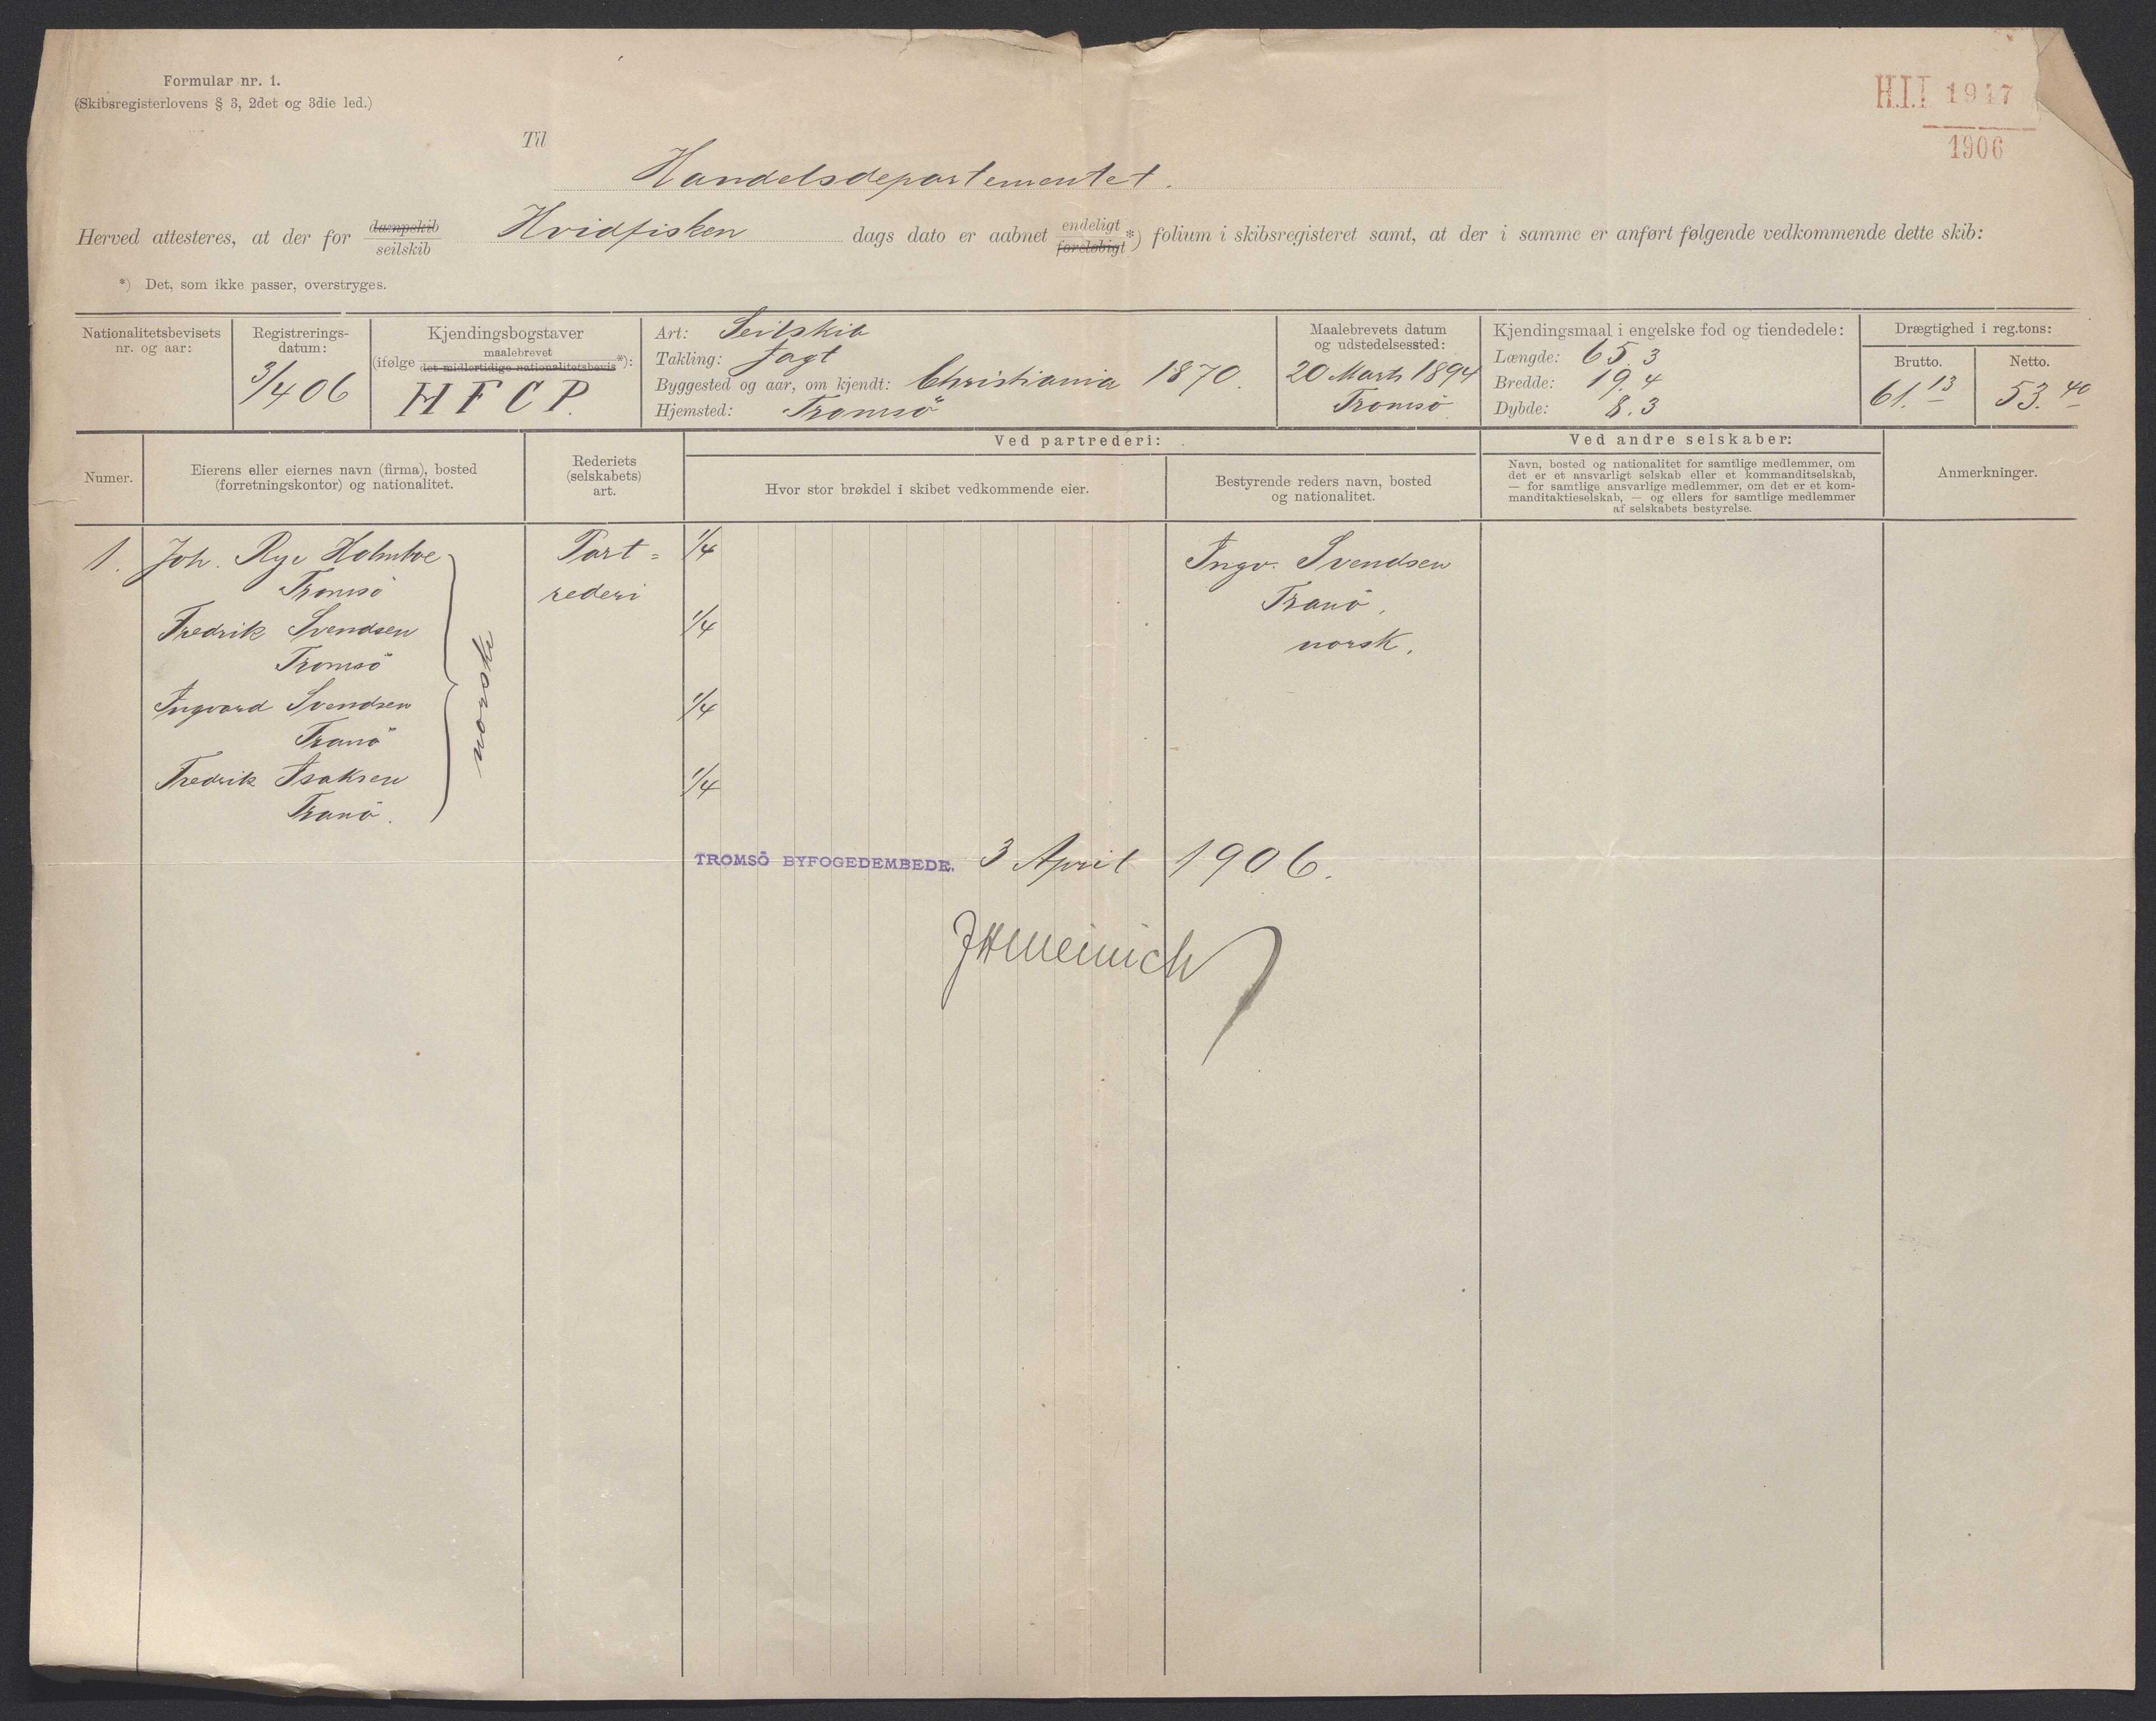 Formular nr. 1.
(Skibsregisterlovens § 3, 2det og 3die led.)
H.I.I 1947
1906
Til
Handelsdepartementet.
Herved attesteres, at der for dampskib seilskib Hvidfisken dags dato er aabnet endeligt foreløbigt *) folium i skibsregisteret samt, at der i samme er anført følgende vedkommende dette skib:
*) Det, som ikke passer, overstryges.
Nationalitetsbevisets nr. og aar:
Registrerings-datum:
3/4 06
Kjendingsbogstaver
(ifølge maalebrevet det midlertidige nationalitetsbevis *):
H F C P.
Art: Seilskib
Takling: Jagt
Byggested og aar, om kjendt: Christiania 1870.
Hjemsted: Tromsö
Maalebrevets datum
og udstedelsessted:
20 Marts 1894
Tromsö
Kjendingsmaal i engelske fod og tiendedele:
Længde: 65.3
Bredde: 19.4
Dybde: 8.3
Drægtighed i reg.tons:
Brutto.
61.13
Netto.
53.40
Numer.
Eierens eller eiernes navn (firma), bosted
(forretningskontor) og nationalitet.
Rederiets
(selskabets)
art.
Ved partrederi:
Hvor stor brøkdel i skibet vedkommende eier.
Bestyrende reders navn, bosted
og nationalitet.
Ved andre selskaber:
Navn, bosted og nationalitet for samtlige medlemmer, om
det er et ansvarligt selskab eller et kommanditselskab,
— for samtlige ansvarlige medlemmer, om det er et kom-
manditaktieselskab, — og ellers for samtlige medlemmer
af selskabets bestyrelse.
Anmerkninger.
1. Joh. Rye Holmboe
Tromsö
Fredrik Svendsen
Tromsö
Ingvard Svendsen
Tranö
Fredrik Isaksen
Tranö.
norske
Part=
rederi
1/4
1/4
1/4
1/4
Ingv. Svendsen
Tranö,
norsk.
TROMSÖ BYFOGEDEMBEDE. 3 April 1906.